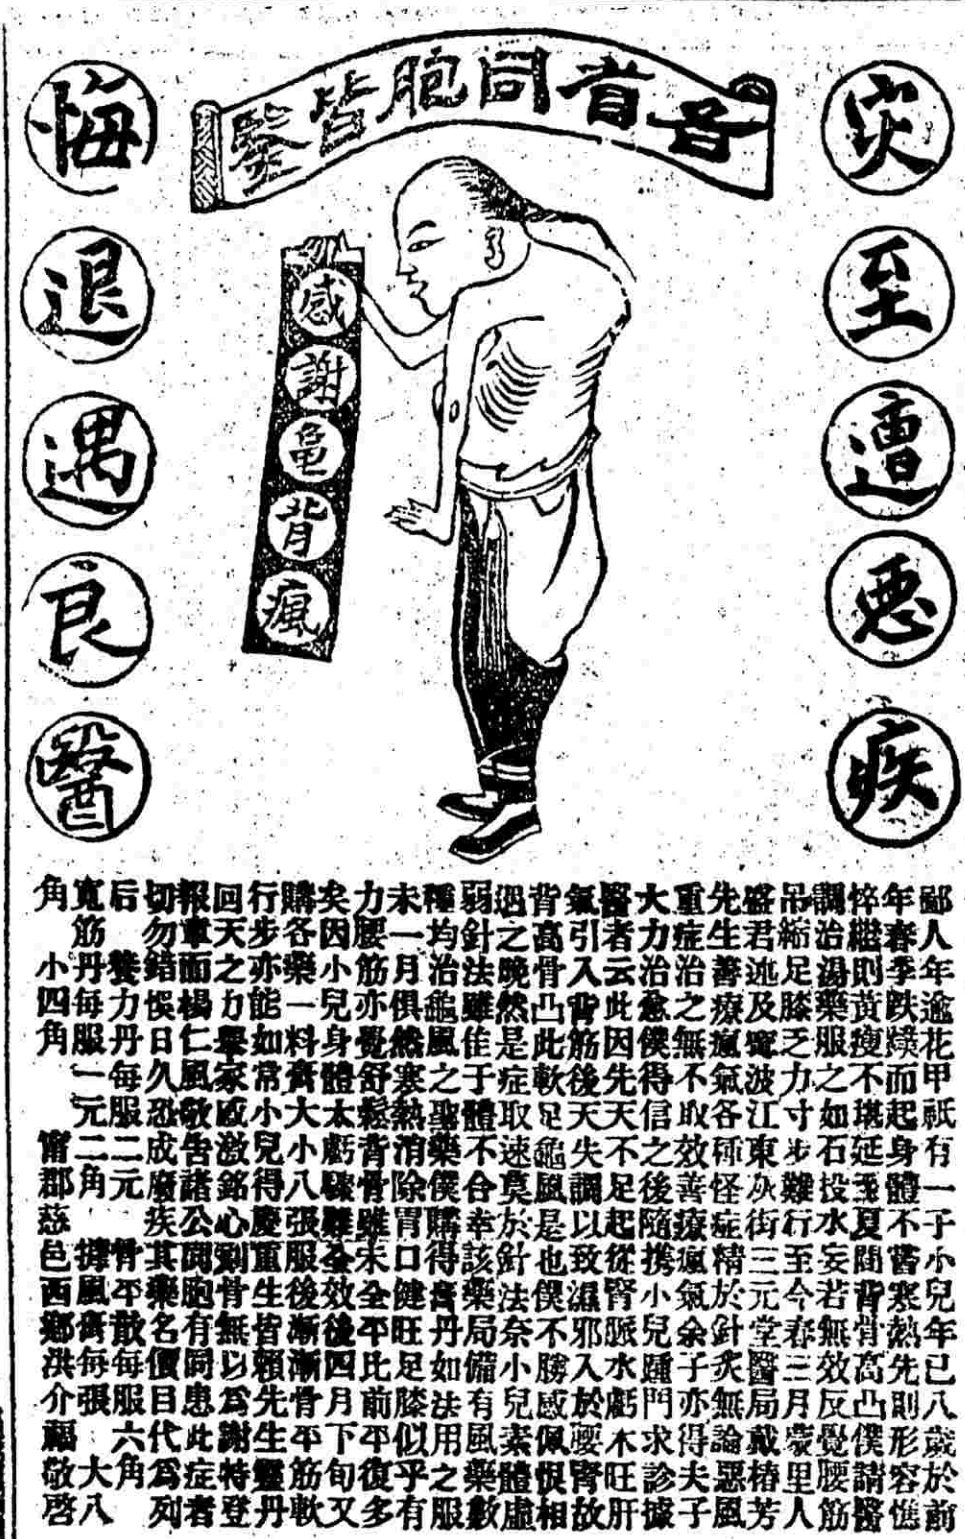 看者同胞皆鑒
灾至遭悪疾
悔退遇良醫
感謝亀背瘋
鄙人年逾花甲祇有一子小兒年已八歲於前
年春季跌撲而起身體不嘗寒熱先則形容憔
悴繼則黃瘦不堪延至夏間背骨高凸僕請醫
調治湯藥服之如石投水妄若無效反覺腰筋
吊縮足膝乏力寸步難行至今春三月蒙里人
盛君述及寗波江東灰街三元堂醫局戴椿芳
先生善療瘋氣各種怪症精於針炙無論惡風
重症治之無不取效善療瘋氣余子亦得夫子
大力治愈僕得信之後隨携小兒踵門求診據
醫者云此因先天不足起從腎脈水虧木旺肝
氣引入背筋後天失調以致濕邪入於腰腎故
背高骨凸此軟足龜風是也僕不勝感佩恨相
遇之晚然是症取速莫於針法奈小兒素體虛
弱針法雖佳于體不合幸該藥局備有風藥數
種均治龜風之聖藥僕購得膏丹如法用之服
未一月俱然寒熱消除胃口健旺足膝似乎有
力腰筋亦覺舒鬆背骨雖未全平比前平復多
矣因小兒身體太虧驟難全效後四月下旬又
購各藥一料膏大小八張服後漸漸骨平筋軟
行步亦能如常小兒得慶重生皆賴先生靈丹
回天之力舉家感激銘心刻骨無以為謝特登
報章而楊仁風敬告諸公同胞有同患此症者
切勿錯悞日久恐成廢疾其藥名價目代為列
后 養力丹每服二元 骨平散每服六角
寬筋丹每服一元二角 風膏每張 大八
角 小四角 甯郡慈邑西鄉洪介福敬啓